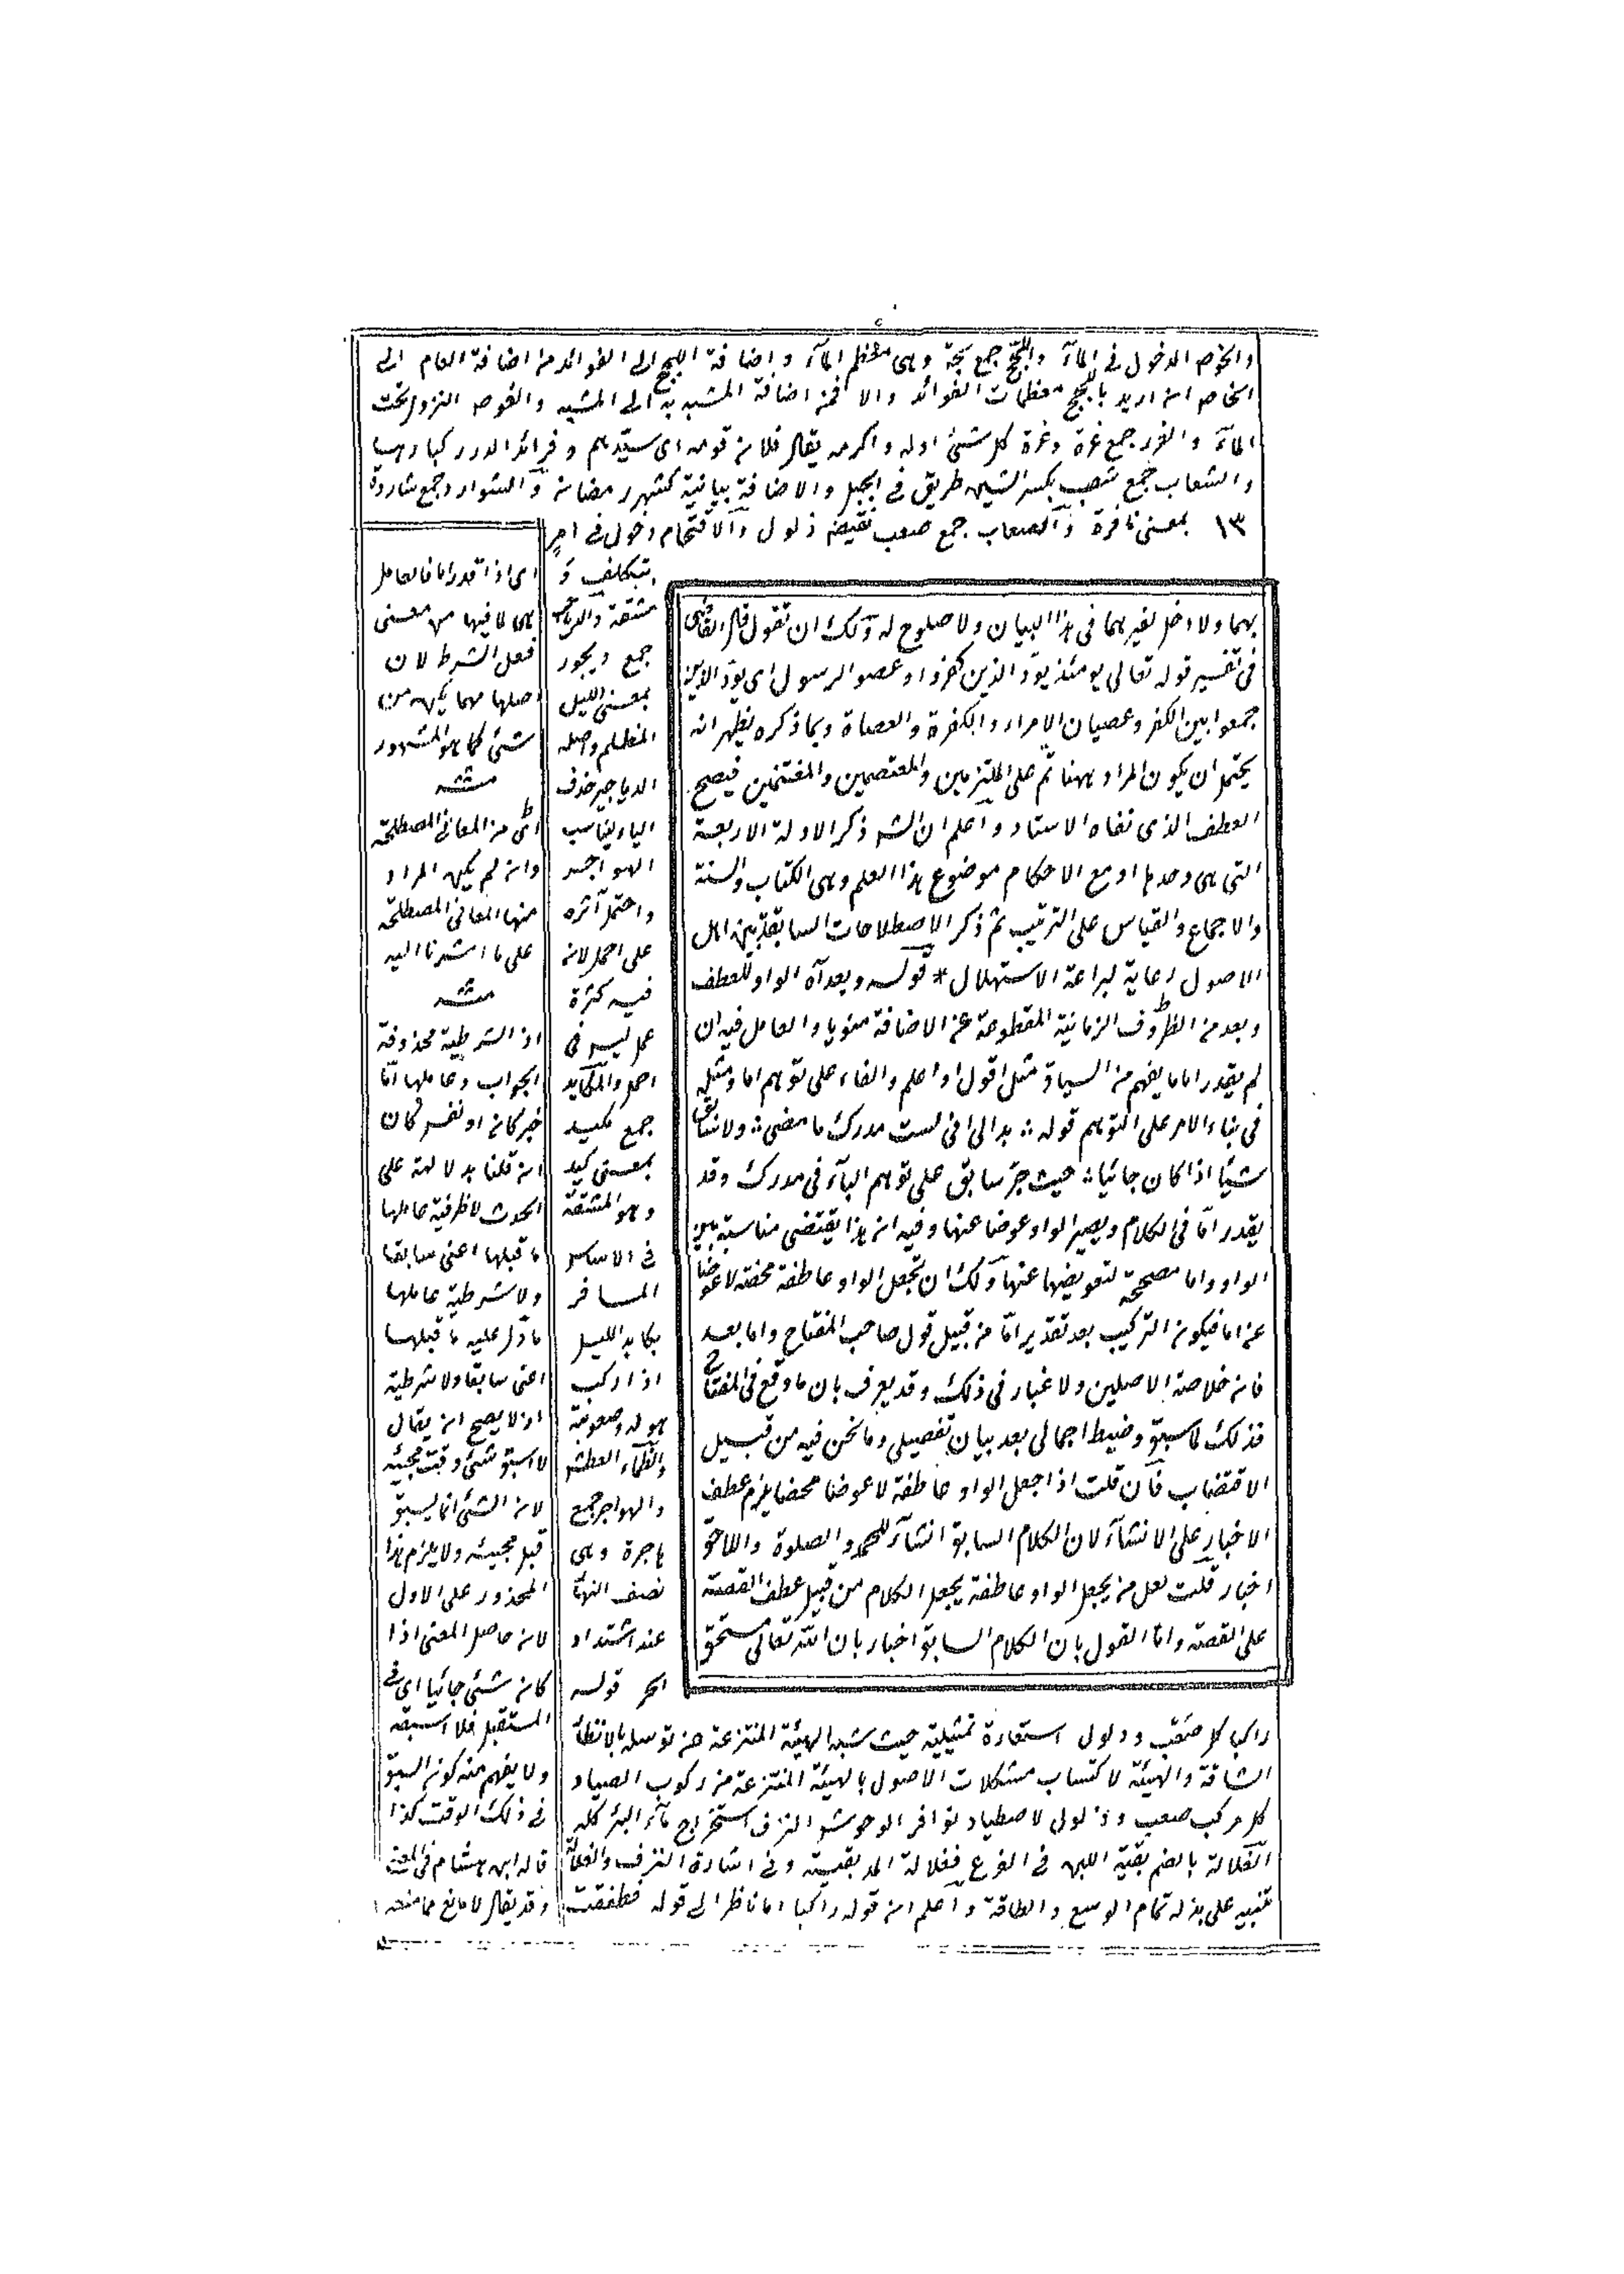 والخوض الدخول فى المآء واللجج جمع لجة وهى معظم المآء واضافة اللجج الى الفوائد من اضافة العام الى
الخاص ان اريد باللجج معظمات الفوائد والا فمن اضافة المشبه به الى المشبه والغوص النزول تحت
المآء والغرر جمع غرة وغرة كل شئ اوله واكرمه يقال فلان قومه اى سيدهم وفرائد الدرر كبارها
والشعاب جمع شعب بكسر الشين طريق فى الجبل والاضافة بيانية كشهر رمضان والشوارد جمع شاردة
١٣ بمعنى نافرة والصعاب جمع صعب نقيض ذلول والاقتحام دخول فى امر
بتكلف و
مشقة والدياجر
جمع ديجور
بمعنى الليل
المظلم واصله
الدياجير حذف
الياء ليناسب
الهواجر
واحتمل آثره
على احمل لانه
فيه كثرة
عمل ليس فى
احمل والمكايد
جمع مكيد
بمعنى كيد
وهو المشقة
فى الاساس
المسافر
يكابد الليل
اذا ركب
هوله وصعوبته
والظمآء العطش
والهواجر جمع
هاجرة وهى
نصف النهار
عند اشتداد
الحر قوله
راكبا كل صعب وذلول استعارة تمثيلية حيث شبه الهيئة المنتزعة من توسله بالانظار
الشاقة والهيئة لاكتساب مشكلات الاصول بالهيئة المنتزعة من ركوب الصياد
كل مركب صعب وذلول لاصطياد نوافر الوحوش النزف استخراج مآء البئر كله
العلالة بالضم بقية اللبن فى الضرع فعلالة الجد بقيته وفى اشارة النزف والعلالة
تنبيه على بذله تمام الوسع والطاقة واعلم ان قوله راكبا اما ناظر الى قوله فطفقت
بهما ولا دخل لغيرهما فى هذا البيان ولا صلوح له ولك ان تقول قال القاضى
فى تفسير قوله تعالى يومئذ يود الذين كفروا وعصوا الرسول اى يود الذين
جمعوا بين الكفر وعصيان الامر او الكفرة والعصاة وبما ذكره يظهر انه
يحتمل ان يكون المراد ههنا ثم على الملتزمين والمعتصمين والمغتنمين فيصح
العطف الذى نفاه الاستاد واعلم ان الش ذكر الادلة الاربعة
التى هى وحدها او مع الاحكام موضوع هذا العلم وهى الكتاب والسنة
والاجماع والقياس على الترتيب ثم ذكر الاصطلاحات السابقة بين اهل
الاصول رعاية لبراعة الاستهلال * قوله وبعد آه الواو للعطف
وبعد من الظروف الزمانية المقطوعة عن الاضافة منويا والعامل فيه ان
لم يقدر اما ما يفهم من السياق مثل اقول او اعلم والفاء على توهم اما ومثله
فى بناء الامر على التوهم قوله ؞ بدا لى انى لست مدرك ما مضى ؞ ولا سابق
شيئا اذا كان جائيا ؞ حيث جر سابق على توهم البآء فى مدرك وقد
يقدر اما فى الكلام ويصير الواو عوضا عنها وفيه ان هذا يقتضى مناسبة بين
الواو واما مصححة لتعويضها عنها ولك ان تجعل الواو عاطفة محضة لا عوضا
عن اما فيكون التركيب بعد تقدير اما من قبيل قول صاحب المفتاح واما بعد
فان خلاصة الاصلين ولا غبار فى ذلك وقد يعرف بان ما وقع فى المفتاح
فذلك لما سبق وضبط اجمالى بعد بيان تفصيلى وما نحن فيه من قبيل
الاقتضاب فان قلت اذا جعل الواو عاطفة لا عوضا محضا يلزم عطف
الاخبار على الانشآء لان الكلام السابق انشآء للحمد والصلوة واللاحق
اخبار قلت لعل من يجعل الواو عاطفة يجعل الكلام من قبيل عطف القصة
على القصة واما القول بان الكلام السابق اخبار بان الله تعالى مستحق
اى اذا قدر اما فالعامل
هى لما فيها من معنى
فعل الشرط لان
اصلها مهما يكن من
شئ كما هو المشهور
منه
اى من المعانى المصطلحة
وان لم يكن المراد
منها المعانى المصطلحة
على ما اشرنا اليه
منه
اذ الشرطية محذوفة
الجواب وعاملها اما
خبر كان او نفس كان
ان قلنا بدلالته على
الحدث لا ظرفية عاملها
ما قبلها اعنى سابقا
ولا شرطية عاملها
ما دل عليه ما قبلها
اعنى سابقا ولا شرطية
اذ لا يصح ان يقال
لا اسبق شئ وقت مجيئه
لان الشئ انما يسبق
قبل مجيئه ولا يلزم هذا
المحذور على الاول
لان حاصل المعنى اذا
كان شئ جائيا اى فى
المستقبل فلا اسبقه
ولا يفهم منه كون السبق
فى ذلك الوقت كذا
قاله ابن هشام فى المغنى
وقد يقال لا مانع مما منعه